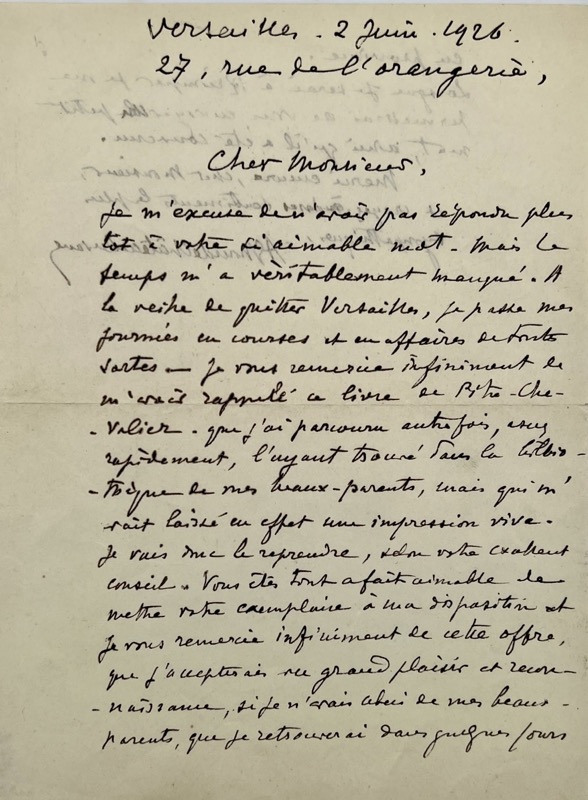 Versailles . 2 Juin . 1926 .
27, rue de l'orangerie,
Cher Monsieur,
Je m'excuse de n'avoir pas répondu plus
tôt à votre si aimable mot. Mais le
temps m'a véritablement manqué. A
la veille de quitter Versailles, je passe mes
journées en courses et en affaires de toutes
sortes — Je vous remercie infiniment de
m'avoir rappelé ce livre de Pitre-Che-
-valier - que j'ai parcouru autrefois, assez
rapidement, l'ayant trouvé dans la biblio-
-thèque de mes beaux-parents, mais qui m'a-
-vait laissé en effet une impression vive.
Je vais donc le reprendre, selon votre excellent
conseil. Vous êtes tout a fait aimable de
mettre votre exemplaire à ma disposition et
je vous remercie infiniment de cette offre,
que j'accepterais avec grand plaisir et recon-
-naissance, si je n'avais celui de mes beaux-
parents, que je retrouverai dans quelques jours